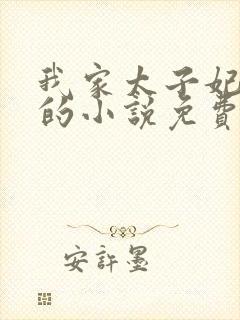 我家太子妃
的小説免費
安許墨